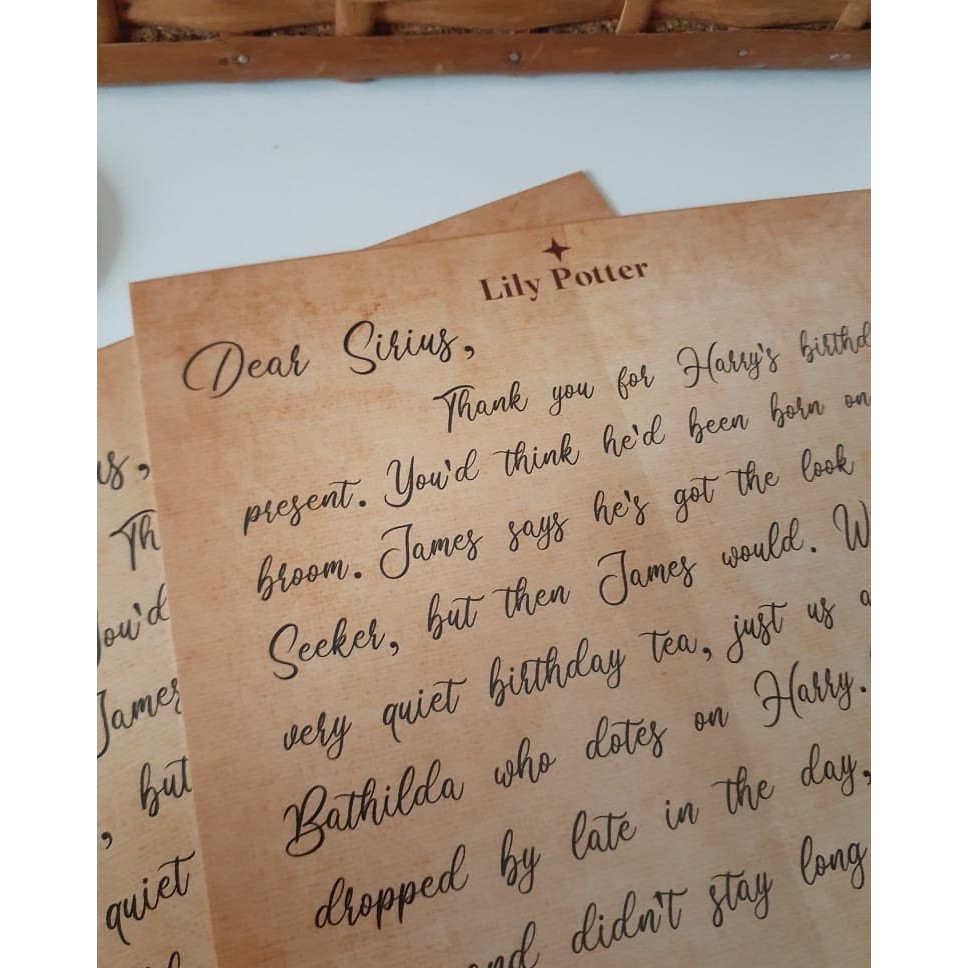 Lily Potter
Dear Sirius,
Thank you for Harry's birthd
present. You'd think he'd been born on
broom. James says he's got the look
Seeker, but then James would. W
very quiet birthday tea, just us a
Bathilda who dotes on Harry.
dropped by late in the day,
and didn't stay long
us,
Th
You'd
James
, but
quiet